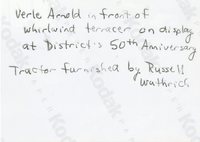 Verle Arnold in front of
whirlwind terracer on display
at District's 50th Anniversary
Tractor furnished by Russell
Wuthrich